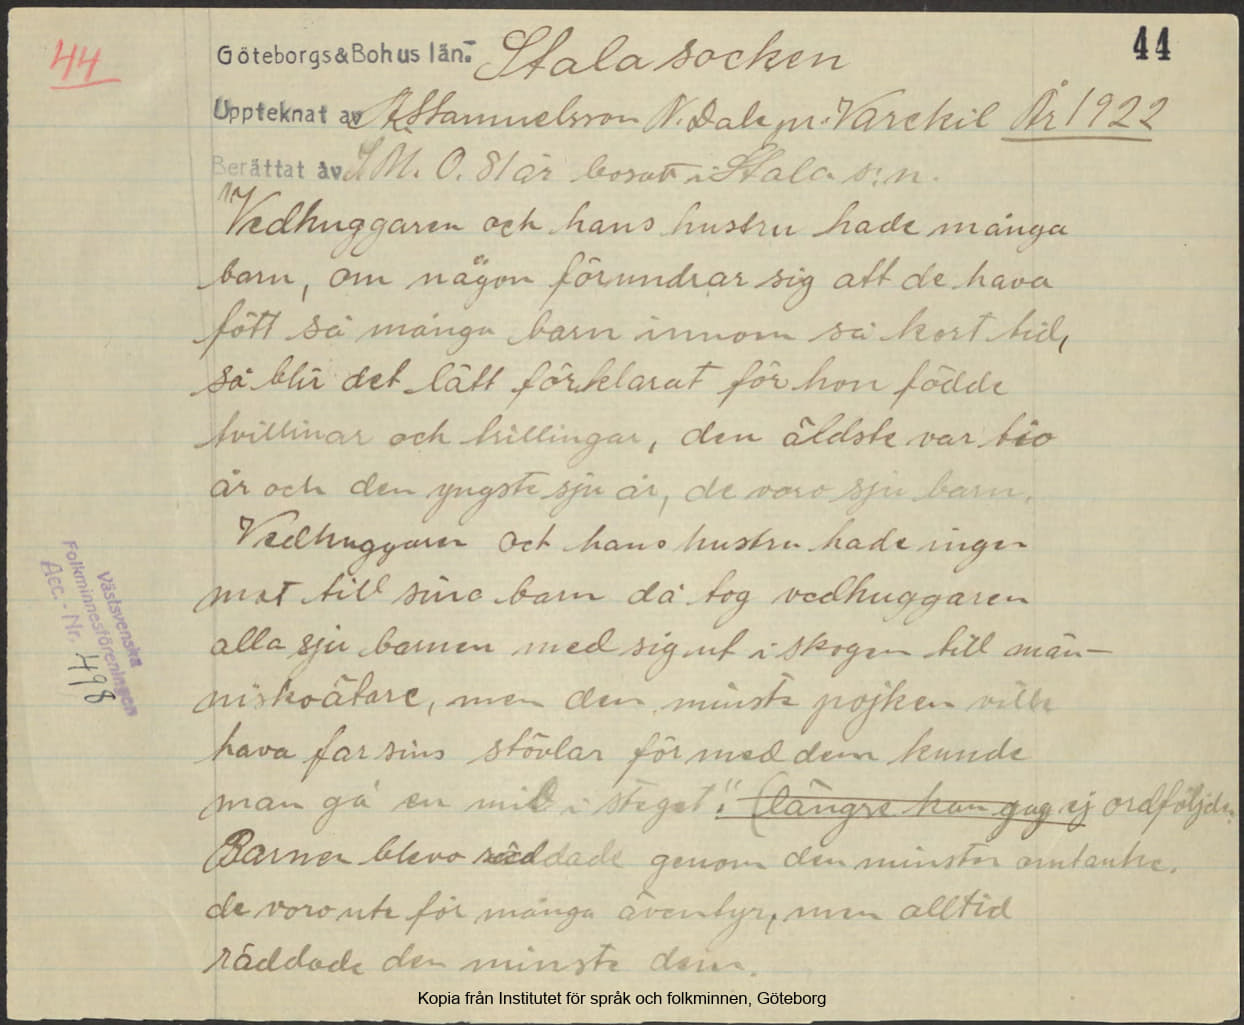 44
44
Göteborgs & Bohus län. Stala socken
Upptecknat av A. Samuelsson N. Dale pr. Varekil År 1922
Berättat av J. M. O. 81 år bosatt i Stala s:n.
"Vedhuggaren och hans hustru hade många
barn, om någon förundrar sig att de hava
fött så många barn innom så kort tid,
så blir det lätt förklarat för hon födde
tvillinar och trillingar, den äldste var tio
år och den yngste sju år, de voro sju barn.
Vedhuggaren och hans hustru hade ingen
mat till sina barn då tog vedhuggaren
alla sju barnen med sig ut i skogen till män-
niskoätare, men den minste pojken ville
hava far sins stövlar för med dem kunde
man gå en mil i steget". (längre kan jag ej ordföljden.
Barnen blevo räddade genom den minstes omtanke.
de voro ute för många äventyr, men alltid
räddade den minste dem.
Västsvenska
Folkminnesföreningen
Acc. - Nr. 498
Kopia från Institutet för språk och folkminnen, Göteborg